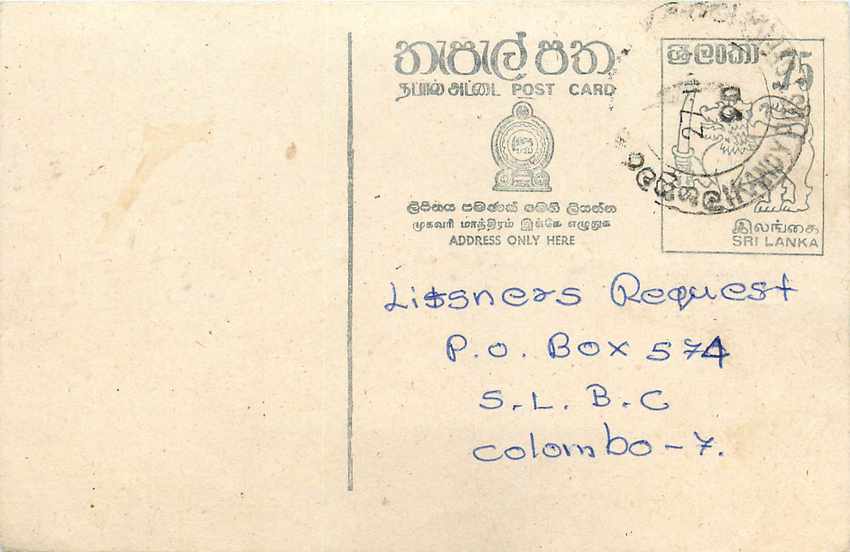 තැපැල් පත
தபால் அட்டை POST CARD
ලිපිනය පමණක් මෙහි ලියන්න
முகவரி மாத்திரம் இங்கே எழுதுக
ADDRESS ONLY HERE
ශ්‍රී ලංකා 75
இலங்கை
SRI LANKA
KANDY
27
Litsners Request
P.O. Box 574
S.L.B.C
Colombo-7.